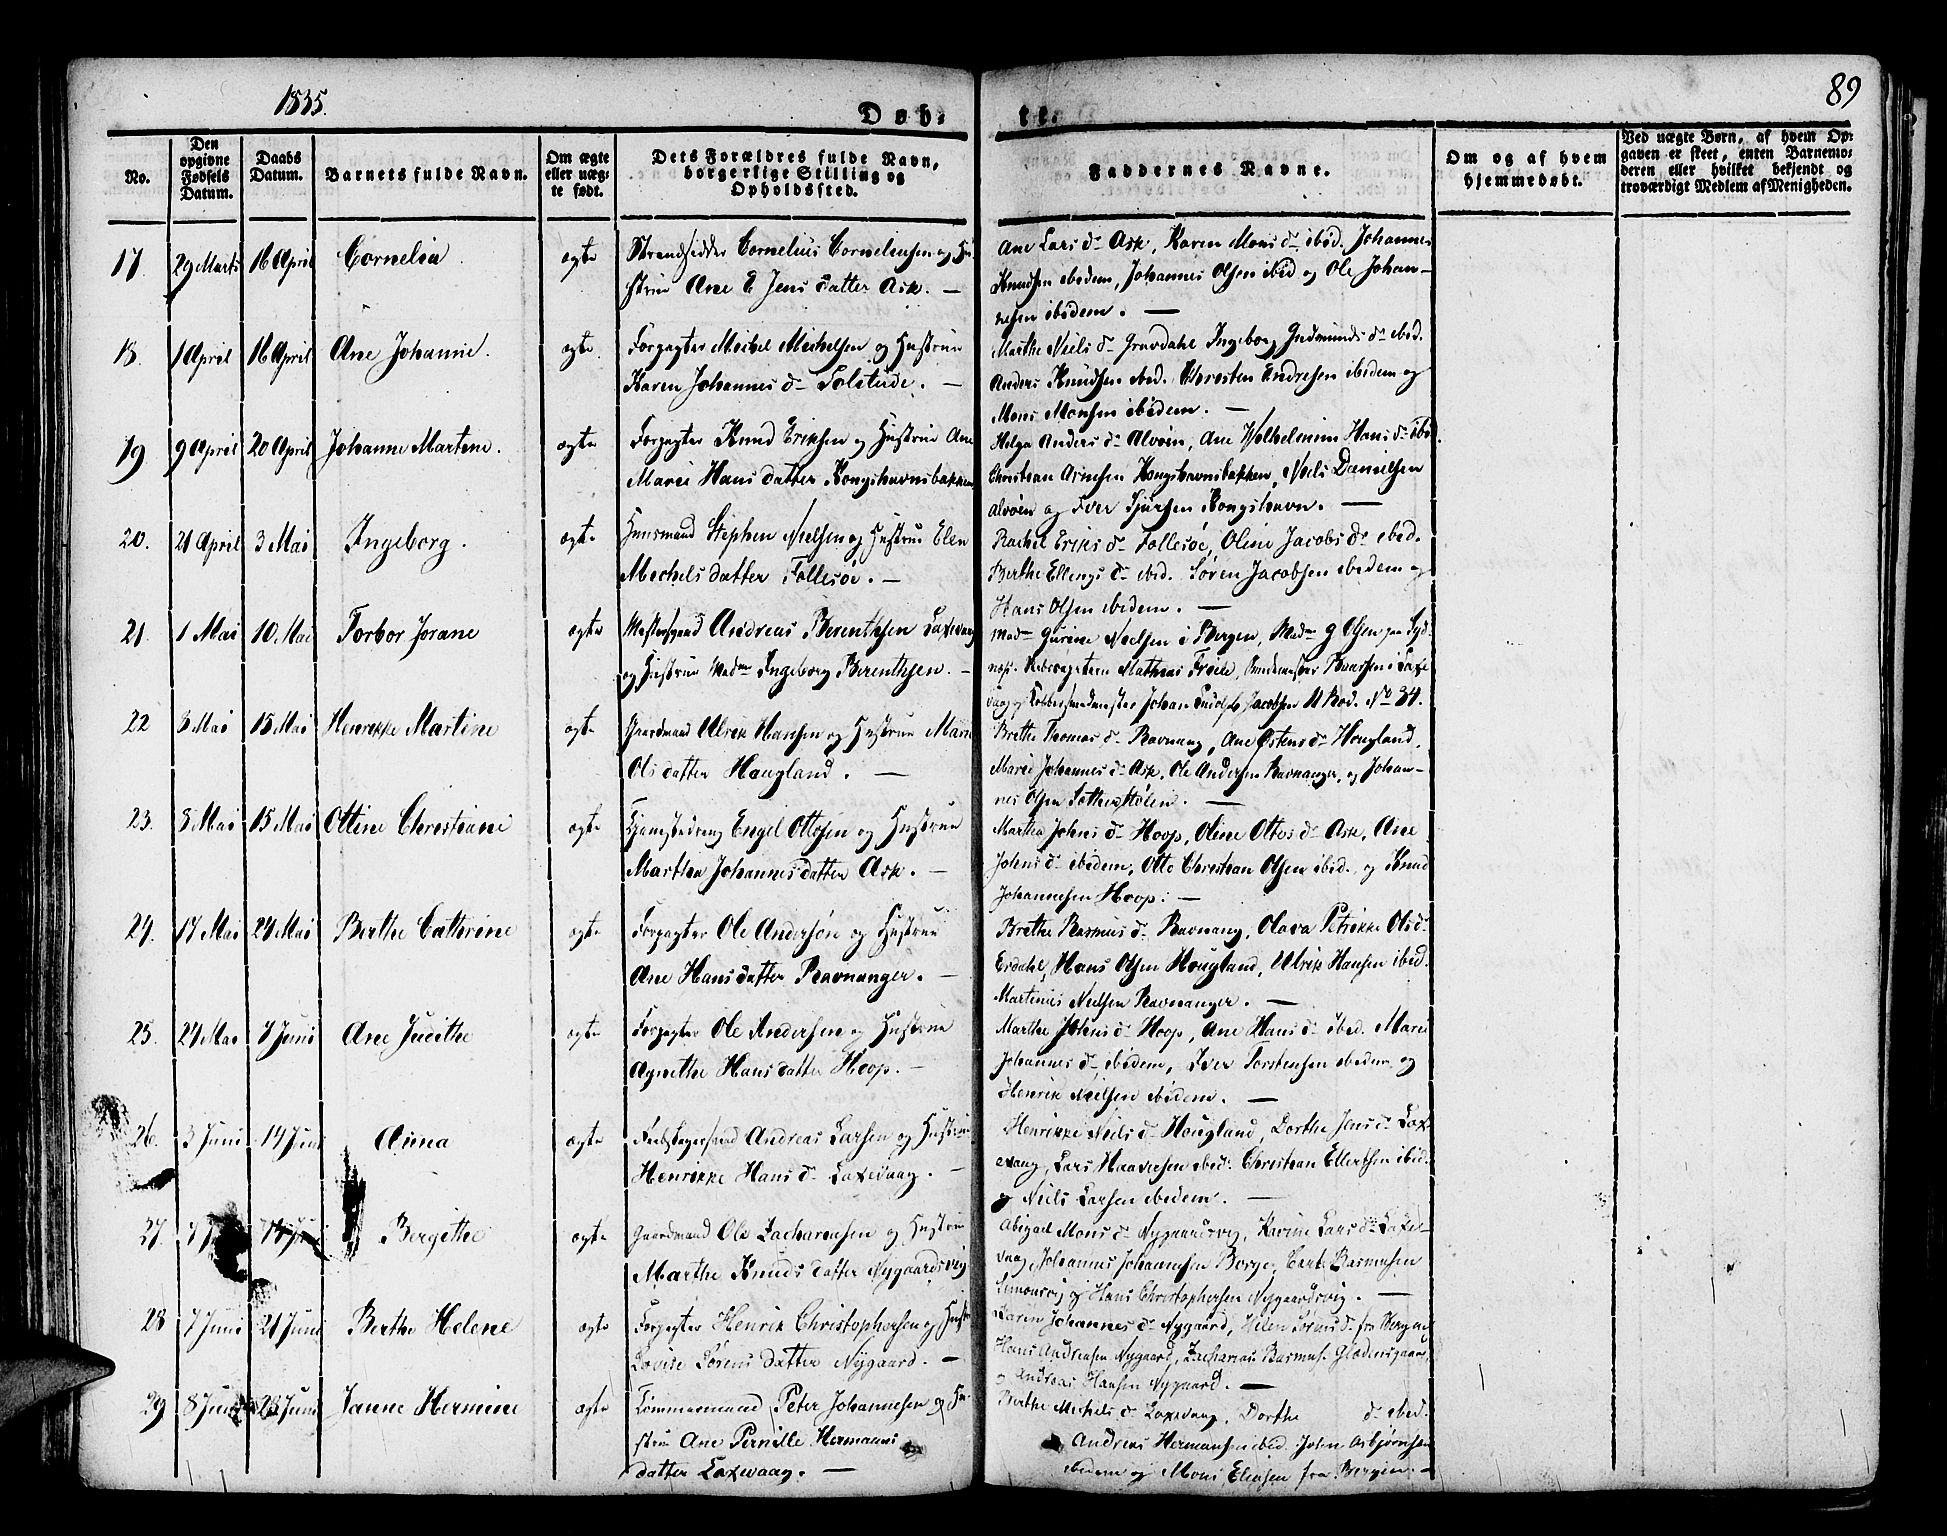 1835.
Døb-
te.
89
No.
Den opgivne Fødsels Datum.
Daabs Datum.
Barnets fulde Navn.
Om ægte eller uægte født.
Dets Forældres fulde Navn, borgerlige Stilling og Opholdssted.
Faddernes Navne.
Om og af hvem hjemmedøbt.
Ved uægte Børn, af hvem Opgaven er skeet, enten Barnemoderen eller hvilket bekjendt og troværdigt Medlem af Menigheden.
17. 29 Marts 16 April Cornelia. ægte
Strandsidder Cornelius Corneliussen og Hustrue Ane E Jens datter Ask. —
Ane Lars d. Ask, Karen Mons d. ibid. Johannes
Knudsen ibidem, Johannes Olsen ibid og Ole Johan-
nesen ibidem. —
18. 1 April 16 April Ane Johanne. ægte.
Forpagter Michel Michelsen og Hustrue
Karen Johannes d. Solitude. —
Marthe Niels d. Gravdahl Ingeborg Gudmunds d. ibid.
Anders Knudsen ibid. Christen Andresen ibidem og
Mons Monsen ibidem. —
19 9 April 20 April Johanne Martine. ægte
Forpagter Knud Eriksen og Hustrue Ane
Marie Hans datter Kongshavnsbakken
Helga Anders d. Alvøen, Ane Wilhelmine Hans d. ibid.
Christian Arnesen Kongshavnsbakken, Niels Danielsen
Alvøen og Iver Sjursen Kongshavn. —
20. 21 April 3 Mai Ingeborg. ægte
Huusmand Stephen Nielsen og Hustrue Elen
Michels datter Follesøe. —
Rachel Eriks d. Follesøe, Oline Jacobs d. ibid.
Berthe Ellings d. ibid. Søren Jacobsen ibidem og
Hans Olsen ibidem. —
21. 1 Mai 10. Mai Torbor Jorane ægte
Mestersvend Andreas Berenthsen Laxevaag
og Hustrue Mad. Ingeborg Berenthsen. —
Mad. Gurine Nielsen i Bergen, Mad. G Olsen paa Syd-
næs. Mathias Frøile,
Johan Ludolph Jacobsen 11 Rod. No 34.
22 3 Mai 15 Mai Henrikke Martine ægte
Gaardmand Ulrik Hansen og Hustrue Marie
Ols datter Hougland. —
Brethe Thomas d. Ravnang, Ane Østens d. Hougland,
Marie Johannes d. Ask, Ole Andersen Ravnanger, og Johan-
nes Olsen —
23. 8 Mai 15 Mai Ottine Christiane ægte
Engel Ottosen og Hustrue
Martha Johannes datter Ask. —
Martha Johns d. Hoop, Oline Ottos d. Ask, Ane
Johns d. ibidem, Otto Christian Olsen ibid. og Knud
Johannesen Hoop. —
24. 17 Mai 24 Mai Berthe Cathrine ægte
Forpagter Ole Andersøn og Hustrue
Ane Hans datter Ravnanger. —
Brethe Rasmus d. Ravnang, Olava Petrikke Ols d.
Erdahl, Hans Olsen Hougland, Ulrik Hansen ibid.
Martinus Nielsen Ravnanger. —
25. 24 Mai 7 Juni Ane Judithe ægte
Forpagter Ole Andersen og Hustrue
Agnethe Hans datter Hoop. —
Marthe Johns d. Hoop, Ane Hans d. ibid. Marie
Johannes d. ibidem, Iver Torstensen ibidem og
Henrik Nielsen ibidem. —
26. 3 Juni 14 Juni Anna ægte
Andreas Larsen og Hustrue
Henrikke Hans d. Laxevaag. —
Henrikke Niels d. Hougland, Dorthe Jens d. Lax-
evaag, Lars Haavesen ibid. Christian Ellertsen ibid.
og Niels Larsen ibidem. —
27. Bergithe ægte
Gaardmand Ole Zachariasen og Hustrue
Marthe Knuds datter Nygaardsvig
Abigael Mons d. Nygaardsvig, Karine Lars d. Laxe-
vaag, Johannes Johannesen Borge, Rasmusen
Simonsvig og Hans Christophersen Nygaardsvig. —
28 7 Juni 21 Juni Berthe Helene ægte
Forpagter Henrik Christophersen og Hustrue
Lovise Sørens datter Nygaard. —
Karen Johannes d. Nygaard, Helen Sørens d. fra Bergen
Hans Andreasen Nygaard, Zacharias Rasmus.
og Andreas Hansen Nygaard. —
29 8 Juni 28 Juni Janne Hermine ægte
Tømmermand Peter Johannesen og Hu-
strue Ane Pernille Hermanns
datter Laxevaag. —
Berthe Michels d. Laxevaag, Dorthe d. ibid.
Andreas Hermansen ibid. John Asbjørnsen
ibidem og Mons Eliasen fra Bergen. —